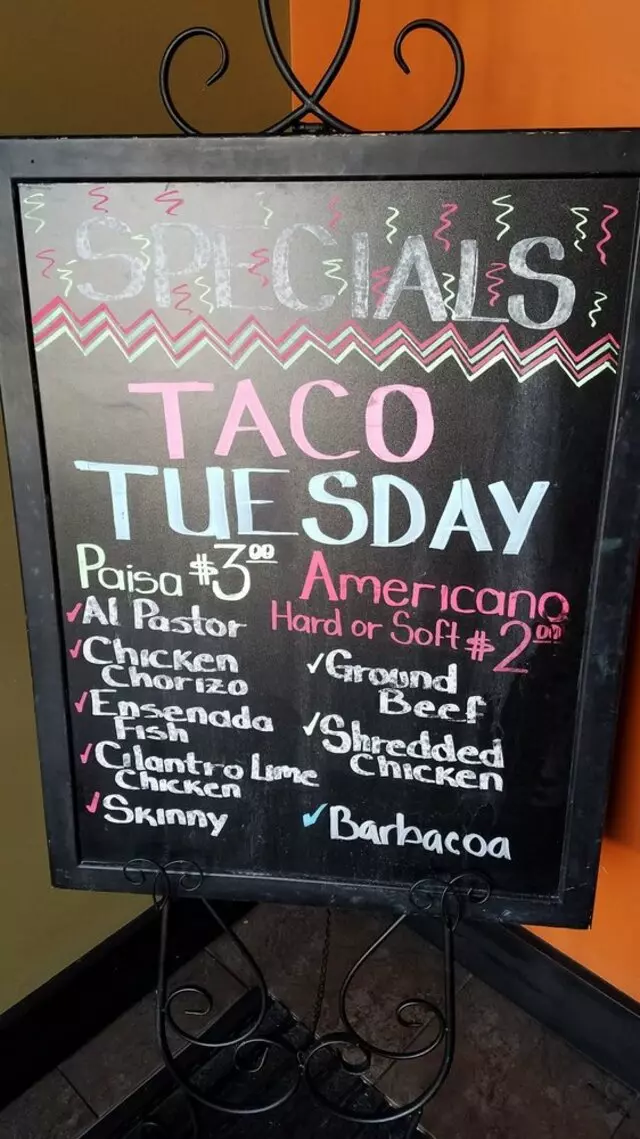 SPECIALS
TACO
TUESDAY
Paisa $3.00
✓Al Pastor
✓Chicken
Chorizo
✓Ensenada
Fish
✓Cilantro Lime
Chicken
✓Skinny
Americano
Hard or Soft $2.00
✓Ground
Beef
✓Shredded
Chicken
✓Barbacoa